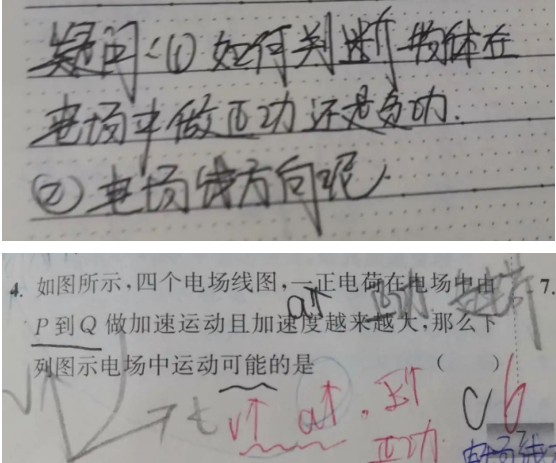 疑问:(1)如何判断物体在
电场中做正功还是负功.
(2)电场线方向呢
4. 如图所示,四个电场线图,一正电荷在电场中由
7.
a↑
P到Q做加速运动且加速度越来越大,那么下
列图示电场中运动可能的是 ( )
v↑ t v↑ a↑. E↑ C 6
正功